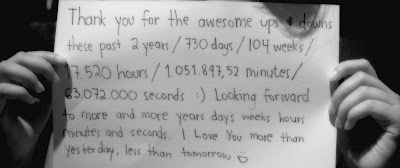 Thank you for the awesome ups & downs
these past 2 years / 730 days / 104 weeks /
17.520 hours / 1.051.897,52 minutes /
63.072.000 seconds :) Looking forward
to more and more years days weeks hours
minutes and seconds. I Love You more than
yesterday, less than tomorrow ☺